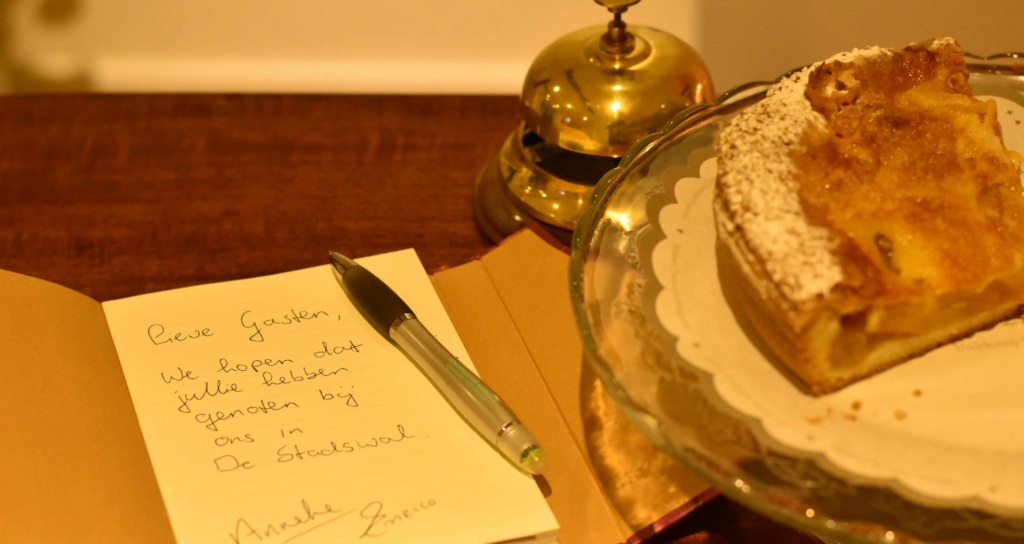 Lieve Gasten,
We hopen dat
jullie hebben
genoten bij
ons in
De Stadswal.
Anneke & Enrico